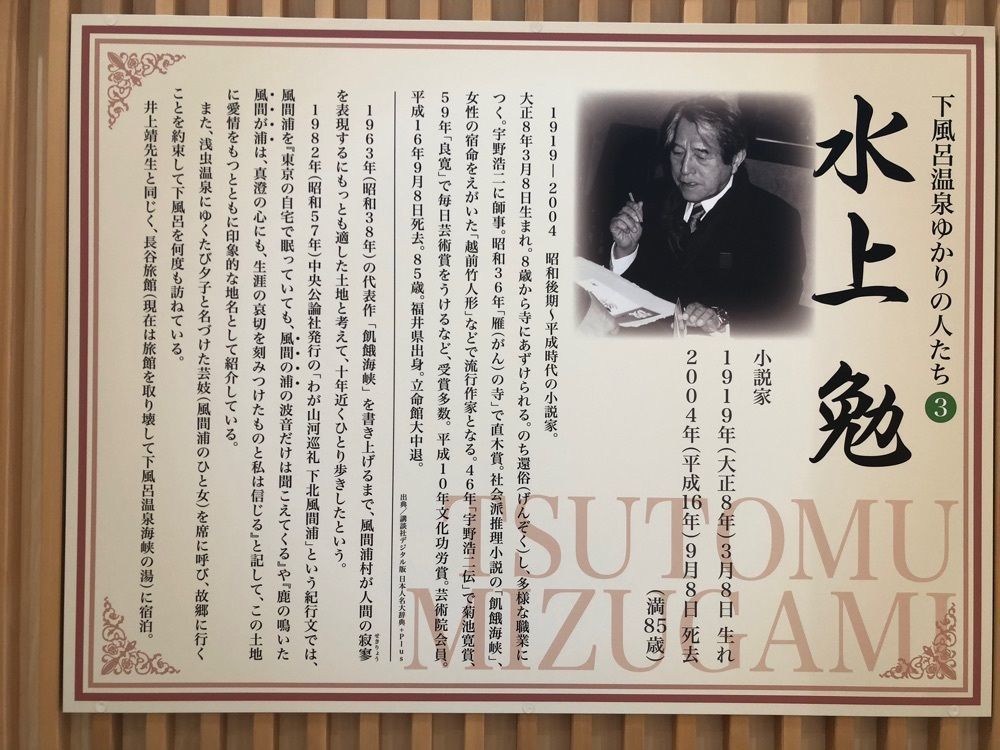 下風呂温泉ゆかりの人たち 3
水上 勉
TSUTOMU
MIZUGAMI
小説家
1919年(大正8年)3月8日 生れ
2004年(平成16年)9月8日 死去
(満85歳)
1919―2004 昭和後期~平成時代の小説家。
大正8年3月8日生まれ。8歳から寺にあずけられる。のち還俗(げんぞく)し、多様な職業に
つく。宇野浩二に師事。昭和36年「雁(がん)の寺」で直木賞。社会派推理小説の「飢餓海峡」、
女性の宿命をえがいた「越前竹人形」などで流行作家となる。46年「宇野浩二伝」で菊池寛賞、
59年「良寛」で毎日芸術賞をうけるなど、受賞多数。平成10年文化功労賞。芸術院会員。
平成16年9月8日死去。85歳。福井県出身。立命館大中退。
出典/講談社デジタル版 日本人名大辞典+Plus
1963年(昭和38年)の代表作「飢餓海峡」を書き上げるまで、風間浦村が人間の寂寥
せきりょう
を表現するにもっとも適した土地と考えて、十年近くひとり歩きしたという。
1982年(昭和57年)中央公論社発行の「わが山河巡礼 下北風間浦」という紀行文では、
風間浦を『東京の自宅で眠っていても、風間の浦の波音だけは聞こえてくる』や『鹿の鳴いた
風間が浦は、真澄の心にも、生涯の哀切を刻みつけたものと私は信じる』と記して、この土地
に愛情をもっとともに印象的な地名として紹介している。
また、浅虫温泉にゆくたび夕子と名づけた芸妓(風間浦のひと女)を席に呼び、故郷に行く
ことを約束して下風呂を何度も訪ねている。
井上靖先生と同じく、長谷旅館(現在は旅館を取り壊して下風呂温泉海峡の湯)に宿泊。